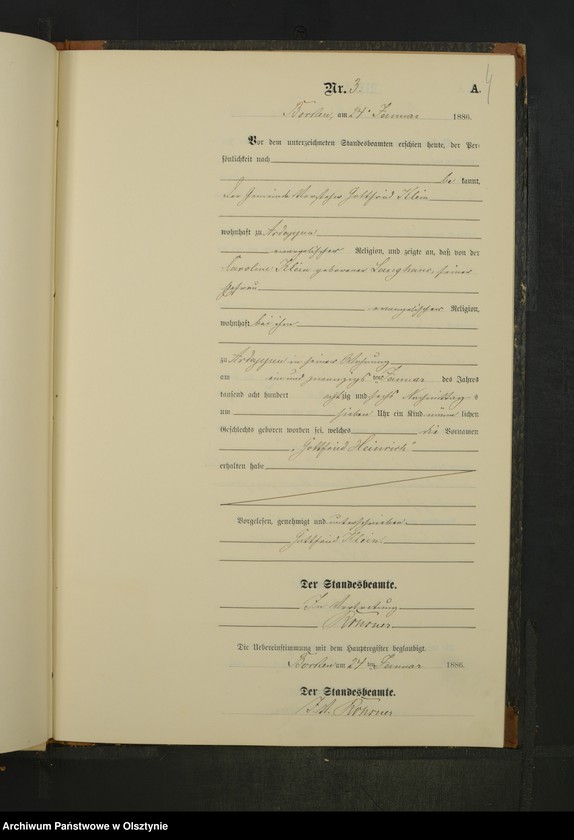 4
Nr. 3. A.
Borken, am 24. Januar 1886.
Vor dem unterzeichneten Standesbeamten erschien heute, der Per-
sönlichkeit nach
be kannt,
der Gemeinde Vorsteher Gottfried Klein
wohnhaft zu Ardappen
evangelischer Religion, und zeigte an, daß von der
Caroline Klein geborener Langhans, seiner
Ehefrau
evangelischer Religion,
wohnhaft bei ihm
zu Ardappen in seiner Wohnung
am ein und zwanzigs ten Januar des Jahres
tausend acht hundert achtzig und sechs Nachmittags
um sieben Uhr ein Kind männ lichen
Geschlechts geboren worden sei, welches die Vornamen
„Gottfried Heinrich“
erhalten habe
Vorgelesen, genehmigt und unterschrieben.
Gottfried Klein
Der Standesbeamte.
In Vertretung
Die Uebereinstimmung mit dem Hauptregister beglaubigt
Borken am 24 ten Januar 1886.
Der Standesbeamte.
Archiwum Państwowe w Olsztynie